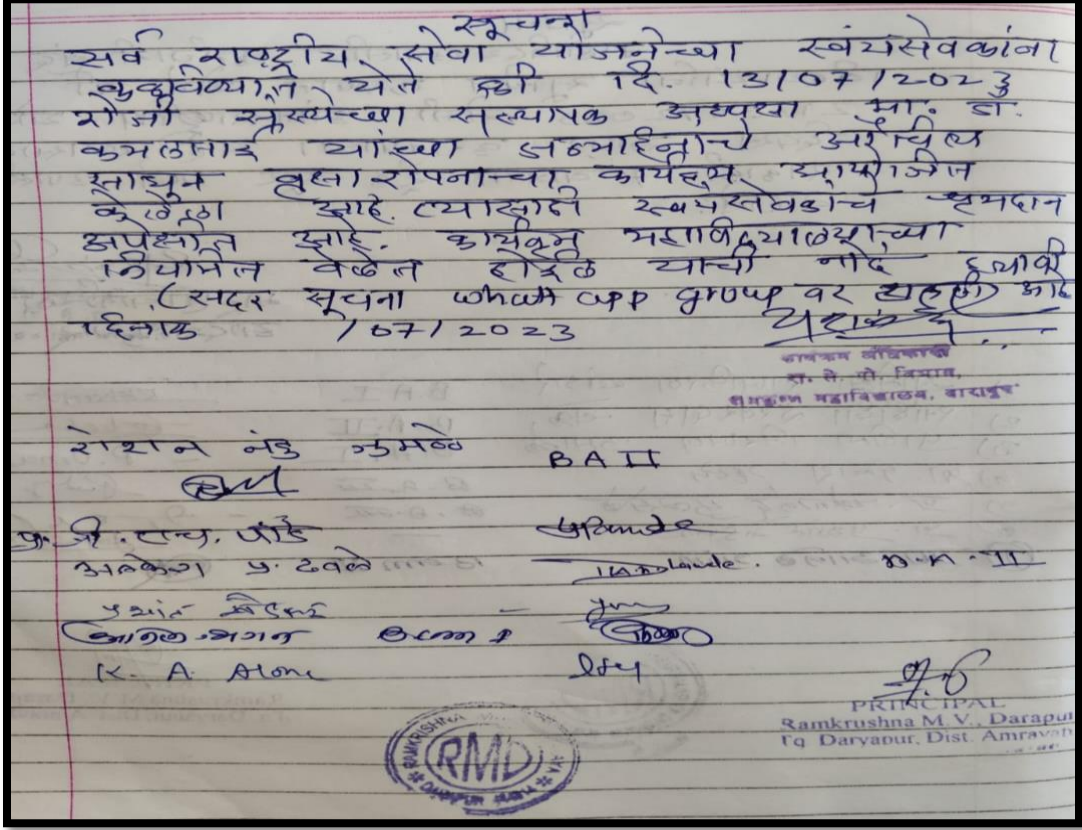 सूचना
सर्व राष्ट्रीय सेवा योजनेच्या स्वंयसेवकांना
कळविण्यात येते की दि. 13/07/2023
रोजी संस्थेच्या संस्थापक अध्यक्षा मा. डॉ.
कमलताई यांच्या जन्मदिनाचे औचित्य
साधुन वृक्षारोपनाचा कार्यक्रम आयोजित
केलेला आहे. त्यासाठी स्वयंसेवकांचे श्रमदान
अपेक्षीत आहे. कार्यक्रम महाविद्यालयाच्या
नियमित वेळेत होईल याची नोंद घ्यावी
(सदर सूचना whats app group वर टाकली) आहे
दिनांक /07/2023
कार्यक्रम अधिकारी
रा. से. यो. विभाग,
रामकृष्ण महाविद्यालय, दारापुर
रोशन नंदु BA II
प्रा. व्ही. एच. पांडे
प्र. ढवळे
K. A. Alone
PRINCIPAL
Ramkrushna M. V., Darapur
Tq Daryapur, Dist. Amravati
RAMKRISHNA
RMD